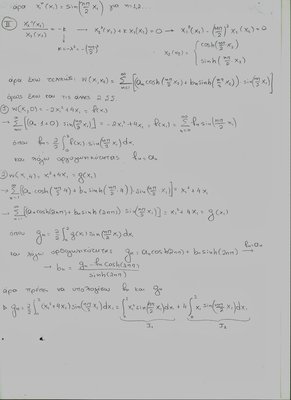 άρα X₁ⁿ(x₁) = sin(nπ/2 x₁) για n=1,2...
II X₂''(x₂)/X₂(x₂) = -k → X₂''(x₂) + k X₂(x₂) = 0 → X₂''(x₂) - (nπ/2)² X₂(x₂) = 0
k = -λ² = -(nπ/2)²
X₂(x₂) = { cosh(nπ/2 x₂)
sinh(nπ/2 x₂)
άρα έχω τελικά: W(x₁,x₂) = Σ [(aₙ cosh(nπ/2 x₂) + bₙ sinh(nπ/2 x₂)) · sin(nπ/2 x₁)]
όμως έχω και τις άλλες 2 ΣΣ
① W(x₁,0) = -2x₁² + 4x₁ = f(x₁)
→ Σ [(aₙ·1+0) sin(nπ/2 x₁)] = -2x₁² + 4x₁ = f(x₁) = Σ fₙ sin(nπ/2 x₁)
όπου fₙ = 2/2 ∫₀² f(x₁) sin(nπ/2 x₁) dx₁
και λόγω ορθογωνιότητας fₙ = aₙ
② W(x₁,4) = x₁² + 4x₁ = g(x₁)
→ Σ [(aₙ cosh(nπ/2 4) + bₙ sinh(nπ/2 4)) · sin(nπ/2 x₁)] = x₁² + 4x₁
→ Σ [(aₙ cosh(2πn) + bₙ sinh(2πn)) sin(nπ/2 x₁)] = x₁² + 4x₁ = g(x₁)
όπου gₙ = 2/2 ∫₀² g(x₁) sin(nπ/2 x₁) dx₁
και λόγω ορθογωνιότητας gₙ = aₙ cosh(2πn) + bₙ sinh(2πn) fₙ=aₙ
→ bₙ = (gₙ - fₙ cosh(2πn)) / sinh(2πn)
άρα πρέπει να υπολογίσω fₙ και gₙ
gₙ = 2/2 ∫₀² (x₁² + 4x₁) sin(nπ/2 x₁) dx₁ = ∫₀² x₁² sin(nπ/2 x₁) dx₁ + 4 ∫₀² x₁ sin(nπ/2 x₁) dx₁
J₁ J₂